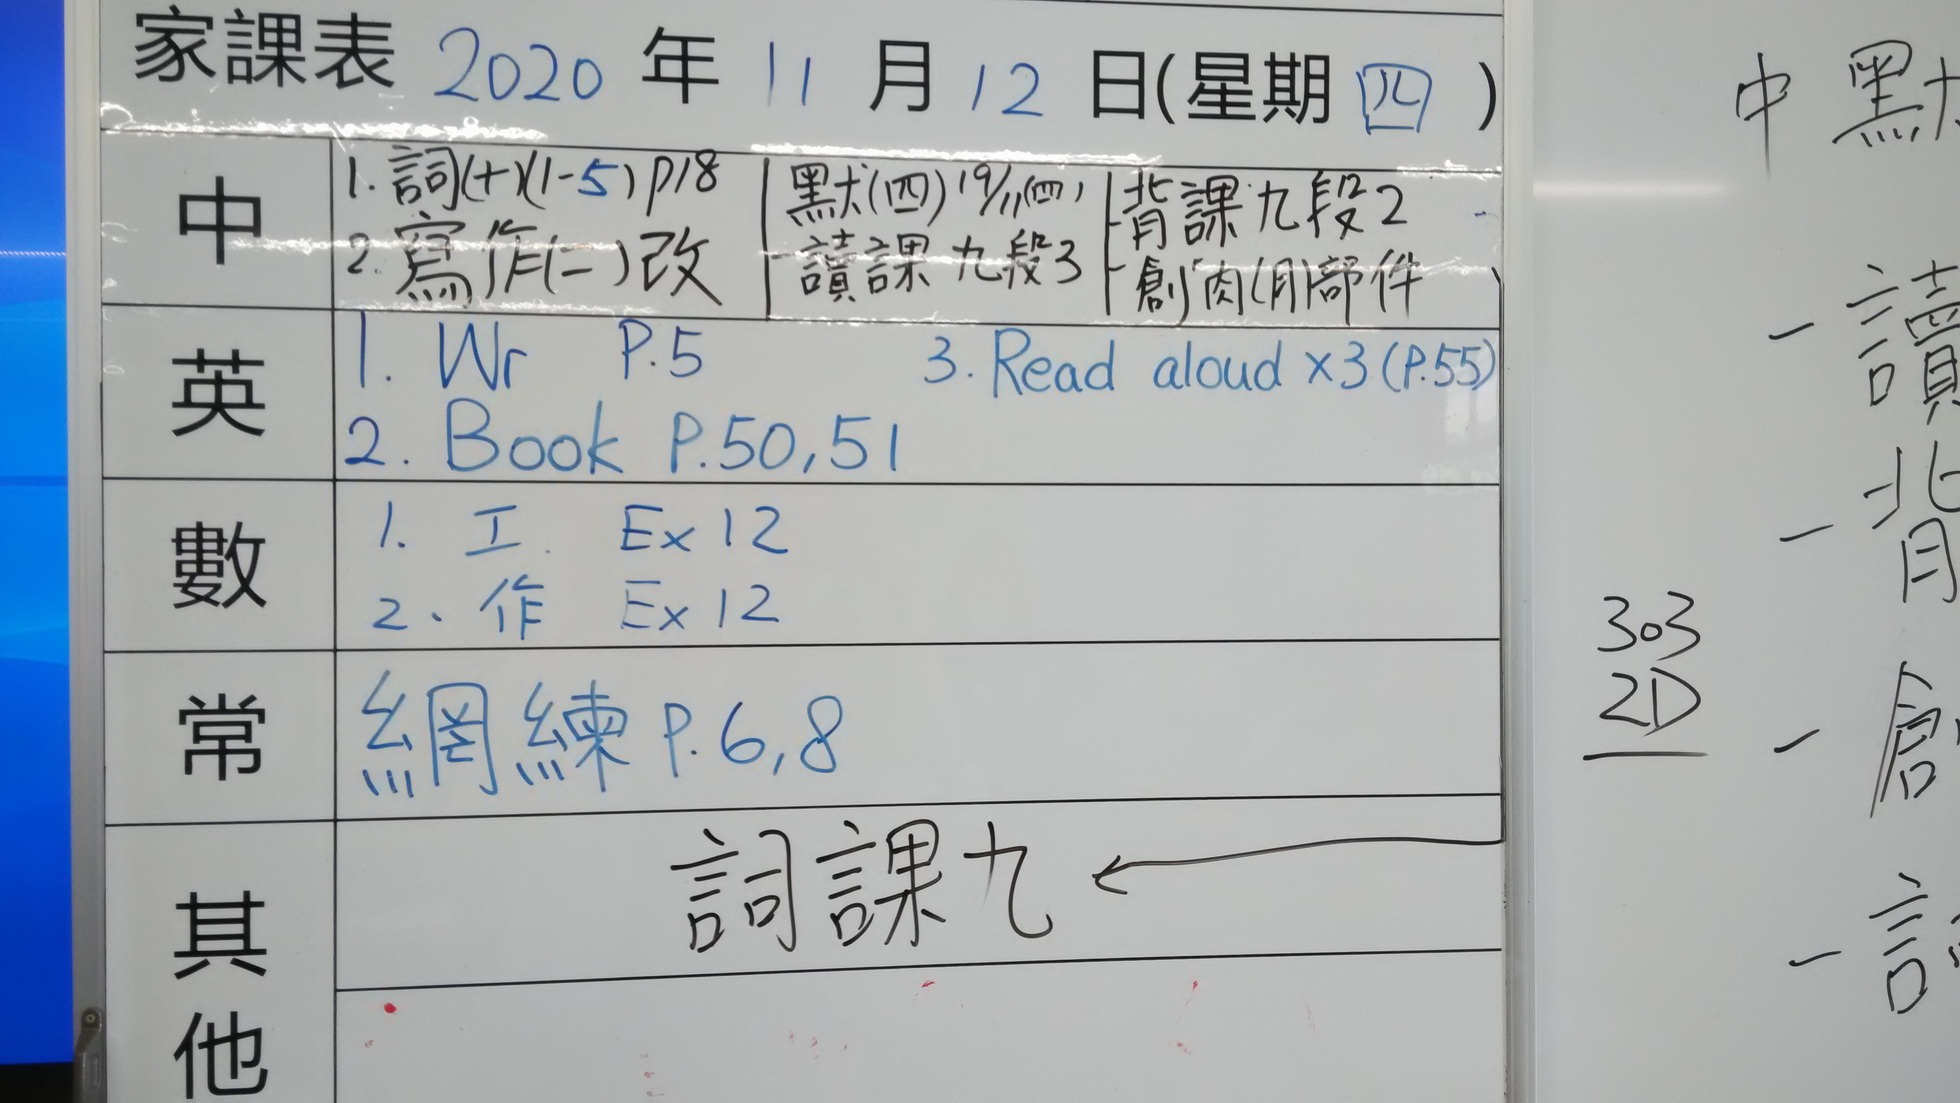 家課表 2020 年 11 月 12 日(星期 四 )
中
1. 詞(十)(1-5) p18
2. 寫作(二)改
默(四) 19/11(四)
- 讀課九段3
- 背課九段2
- 創肉(月)部件
英
1. Wr P.5
2. Book P.50,51
3. Read aloud ×3 (P.55)
數
1. 工. Ex 12
2. 作 Ex 12
常
網練 P.6,8
其他
詞課九
中 默
- 讀
- 背
303
2D
- 創